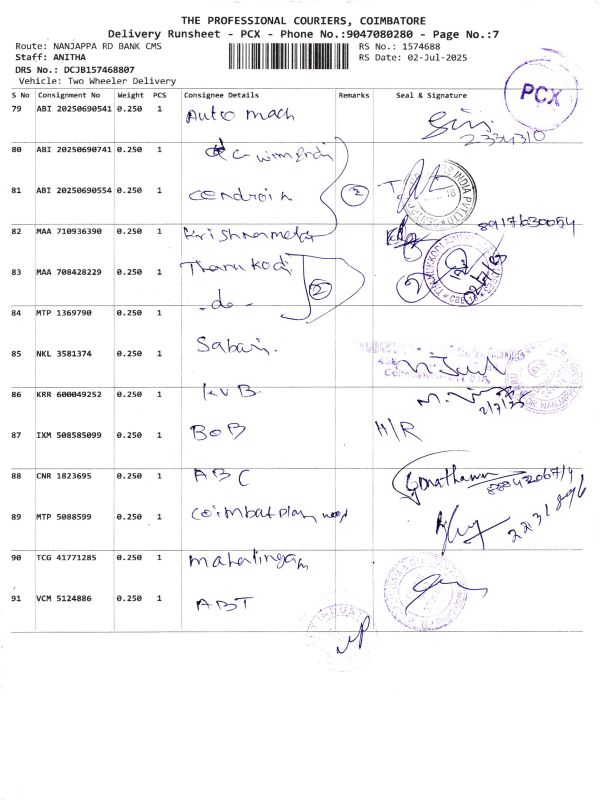 THE PROFESSIONAL COURIERS, COIMBATORE
Delivery Runsheet - PCX - Phone No.:9047080280 - Page No.:7
Route: NANJAPPA RD BANK CMS
RS No.: 1574688
Staff: ANITHA
RS Date: 02-Jul-2025
DRS No.: DCJB157468807
Vehicle: Two Wheeler Delivery
PCX
S No Consignment No Weight PCS Consignee Details Remarks Seal & Signature
79 ABI 20250690541 0.250 1 Auto mach
2334310
80 ABI 20250690741 0.250 1
81 ABI 20250690554 0.250 1 cendroin 2
82 MAA 710936390 0.250 1 Krishnameta
83 MAA 708428229 0.250 1 Tharukodi 2
84 MTP 1369790 0.250 1 -do-
85 NKL 3581374 0.250 1 Sabari
86 KRR 600049252 0.250 1 KVB
2/7/25
87 IXM 508585099 0.250 1 BOB H/R
88 CNR 1823695 0.250 1 ABC
89 MTP 5088599 0.250 1 coimbat
2231896
90 TCG 41771285 0.250 1 mahalingam
91 VCM 5124886 0.250 1 ABT